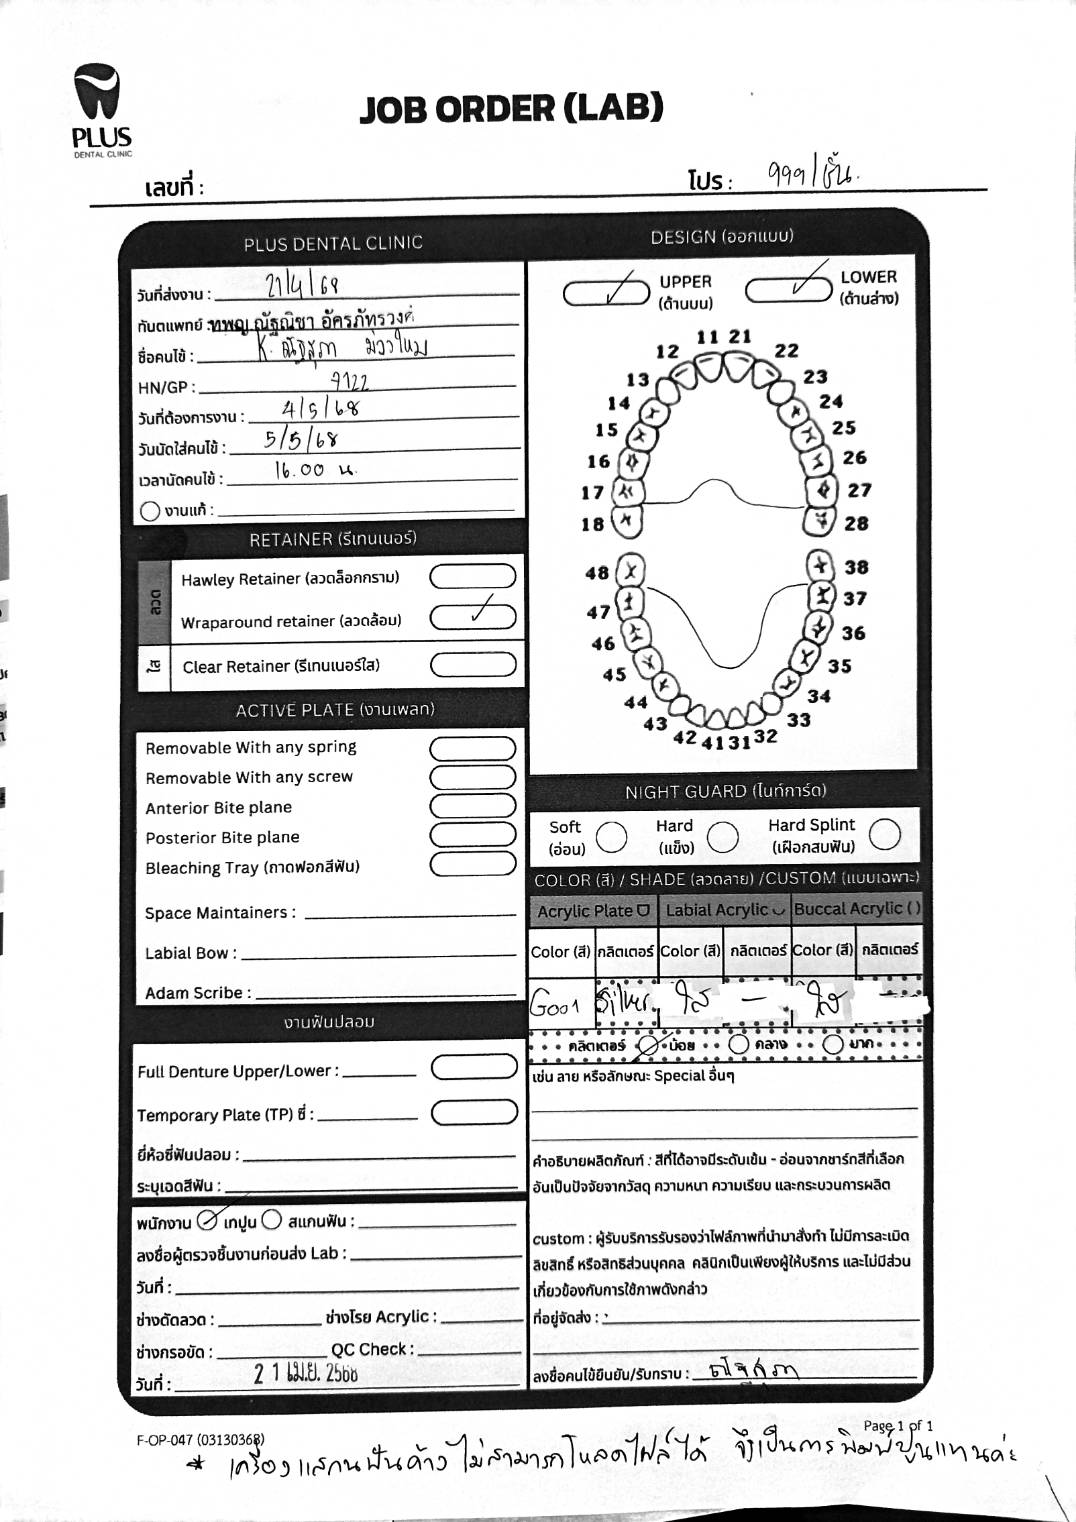 PLUS
DENTAL CLINIC
JOB ORDER (LAB)
เลขที่ :
โปร : 999/ชิ้น.
PLUS DENTAL CLINIC
วันที่ส่งงาน : 21/4/68
ทันตแพทย์ : ทพญ.ณัฐณิชา อัครภัทรวงศ์
ชื่อคนไข้ : K. ณัฐสุภา ม่วงใหม
HN/GP : 7122
วันที่ต้องการงาน : 4/5/68
วันนัดใส่คนไข้ : 5/5/68
เวลานัดคนไข้ : 16.00 น.
งานแก้ :
RETAINER (รีเทนเนอร์)
ลวด
Hawley Retainer (ลวดล็อกกราม)
Wraparound retainer (ลวดล้อม)
ใส
Clear Retainer (รีเทนเนอร์ใส)
ACTIVE PLATE (งานเพลท)
Removable With any spring
Removable With any screw
Anterior Bite plane
Posterior Bite plane
Bleaching Tray (ถาดฟอกสีฟัน)
Space Maintainers :
Labial Bow :
Adam Scribe :
งานฟันปลอม
Full Denture Upper/Lower :
Temporary Plate (TP) ซี่ :
ยี่ห้อซี่ฟันปลอม :
ระบุเฉดสีฟัน :
พนักงาน เทปูน สแกนฟัน :
ลงชื่อผู้ตรวจชิ้นงานก่อนส่ง Lab :
วันที่ :
ช่างดัดลวด : ช่างโรย Acrylic :
ช่างกรอขัด : QC Check :
วันที่ : 21 เม.ย. 2568
DESIGN (ออกแบบ)
UPPER
(ด้านบน)
LOWER
(ด้านล่าง)
11 21
12 22
13 23
14 24
15 25
16 26
17 27
18 28
48 38
47 37
46 36
45 35
44 34
43 33
42 41 31 32
NIGHT GUARD (ไนท์การ์ด)
Soft
(อ่อน)
Hard
(แข็ง)
Hard Splint
(เฝือกสบฟัน)
COLOR (สี) / SHADE (ลวดลาย) /CUSTOM (แบบเฉพาะ)
Acrylic Plate Labial Acrylic Buccal Acrylic ( )
Color (สี) กลิตเตอร์ Color (สี) กลิตเตอร์ Color (สี) กลิตเตอร์
G001 Silver ใส - ใส -
กลิตเตอร์ น้อย กลาง มาก
เช่น ลาย หรือลักษณะ Special อื่นๆ
คำอธิบายผลิตภัณฑ์ : สีที่ได้อาจมีระดับเข้ม - อ่อนจากชาร์ทสีที่เลือก
อันเป็นปัจจัยจากวัสดุ ความหนา ความเรียบ และกระบวนการผลิต
custom : ผู้รับบริการรับรองว่าไฟล์ภาพที่นำมาสั่งทำ ไม่มีการละเมิด
ลิขสิทธิ์ หรือสิทธิส่วนบุคคล คลินิกเป็นเพียงผู้ให้บริการ และไม่มีส่วน
เกี่ยวข้องกับการใช้ภาพดังกล่าว
ที่อยู่จัดส่ง :
ลงชื่อคนไข้ยืนยัน/รับทราบ : ณัฐสุภา
F-OP-047 (03130368)
Page 1 of 1
* เครื่องแสกนฟันค้าง ไม่สามารถโหลดไฟล์ได้ จึงเป็นการพิมพ์ปูนแทนค่ะ